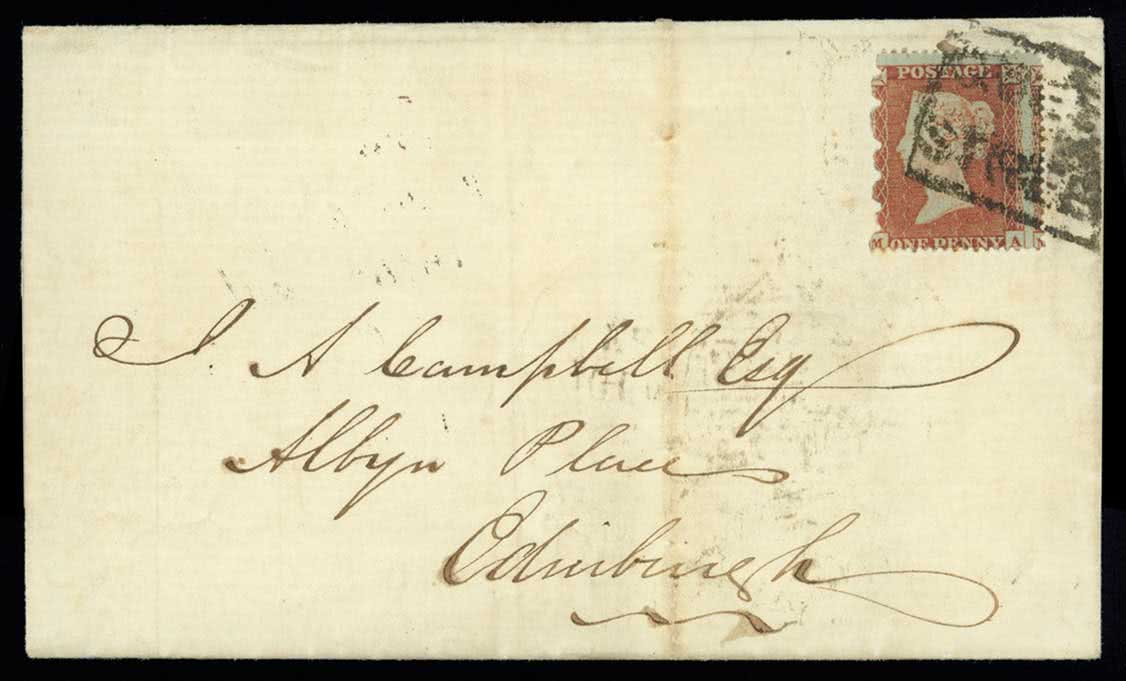 POSTAGE
M ONE PENNY A
J. A Campbell Esq
Albyn Place
Edinburgh